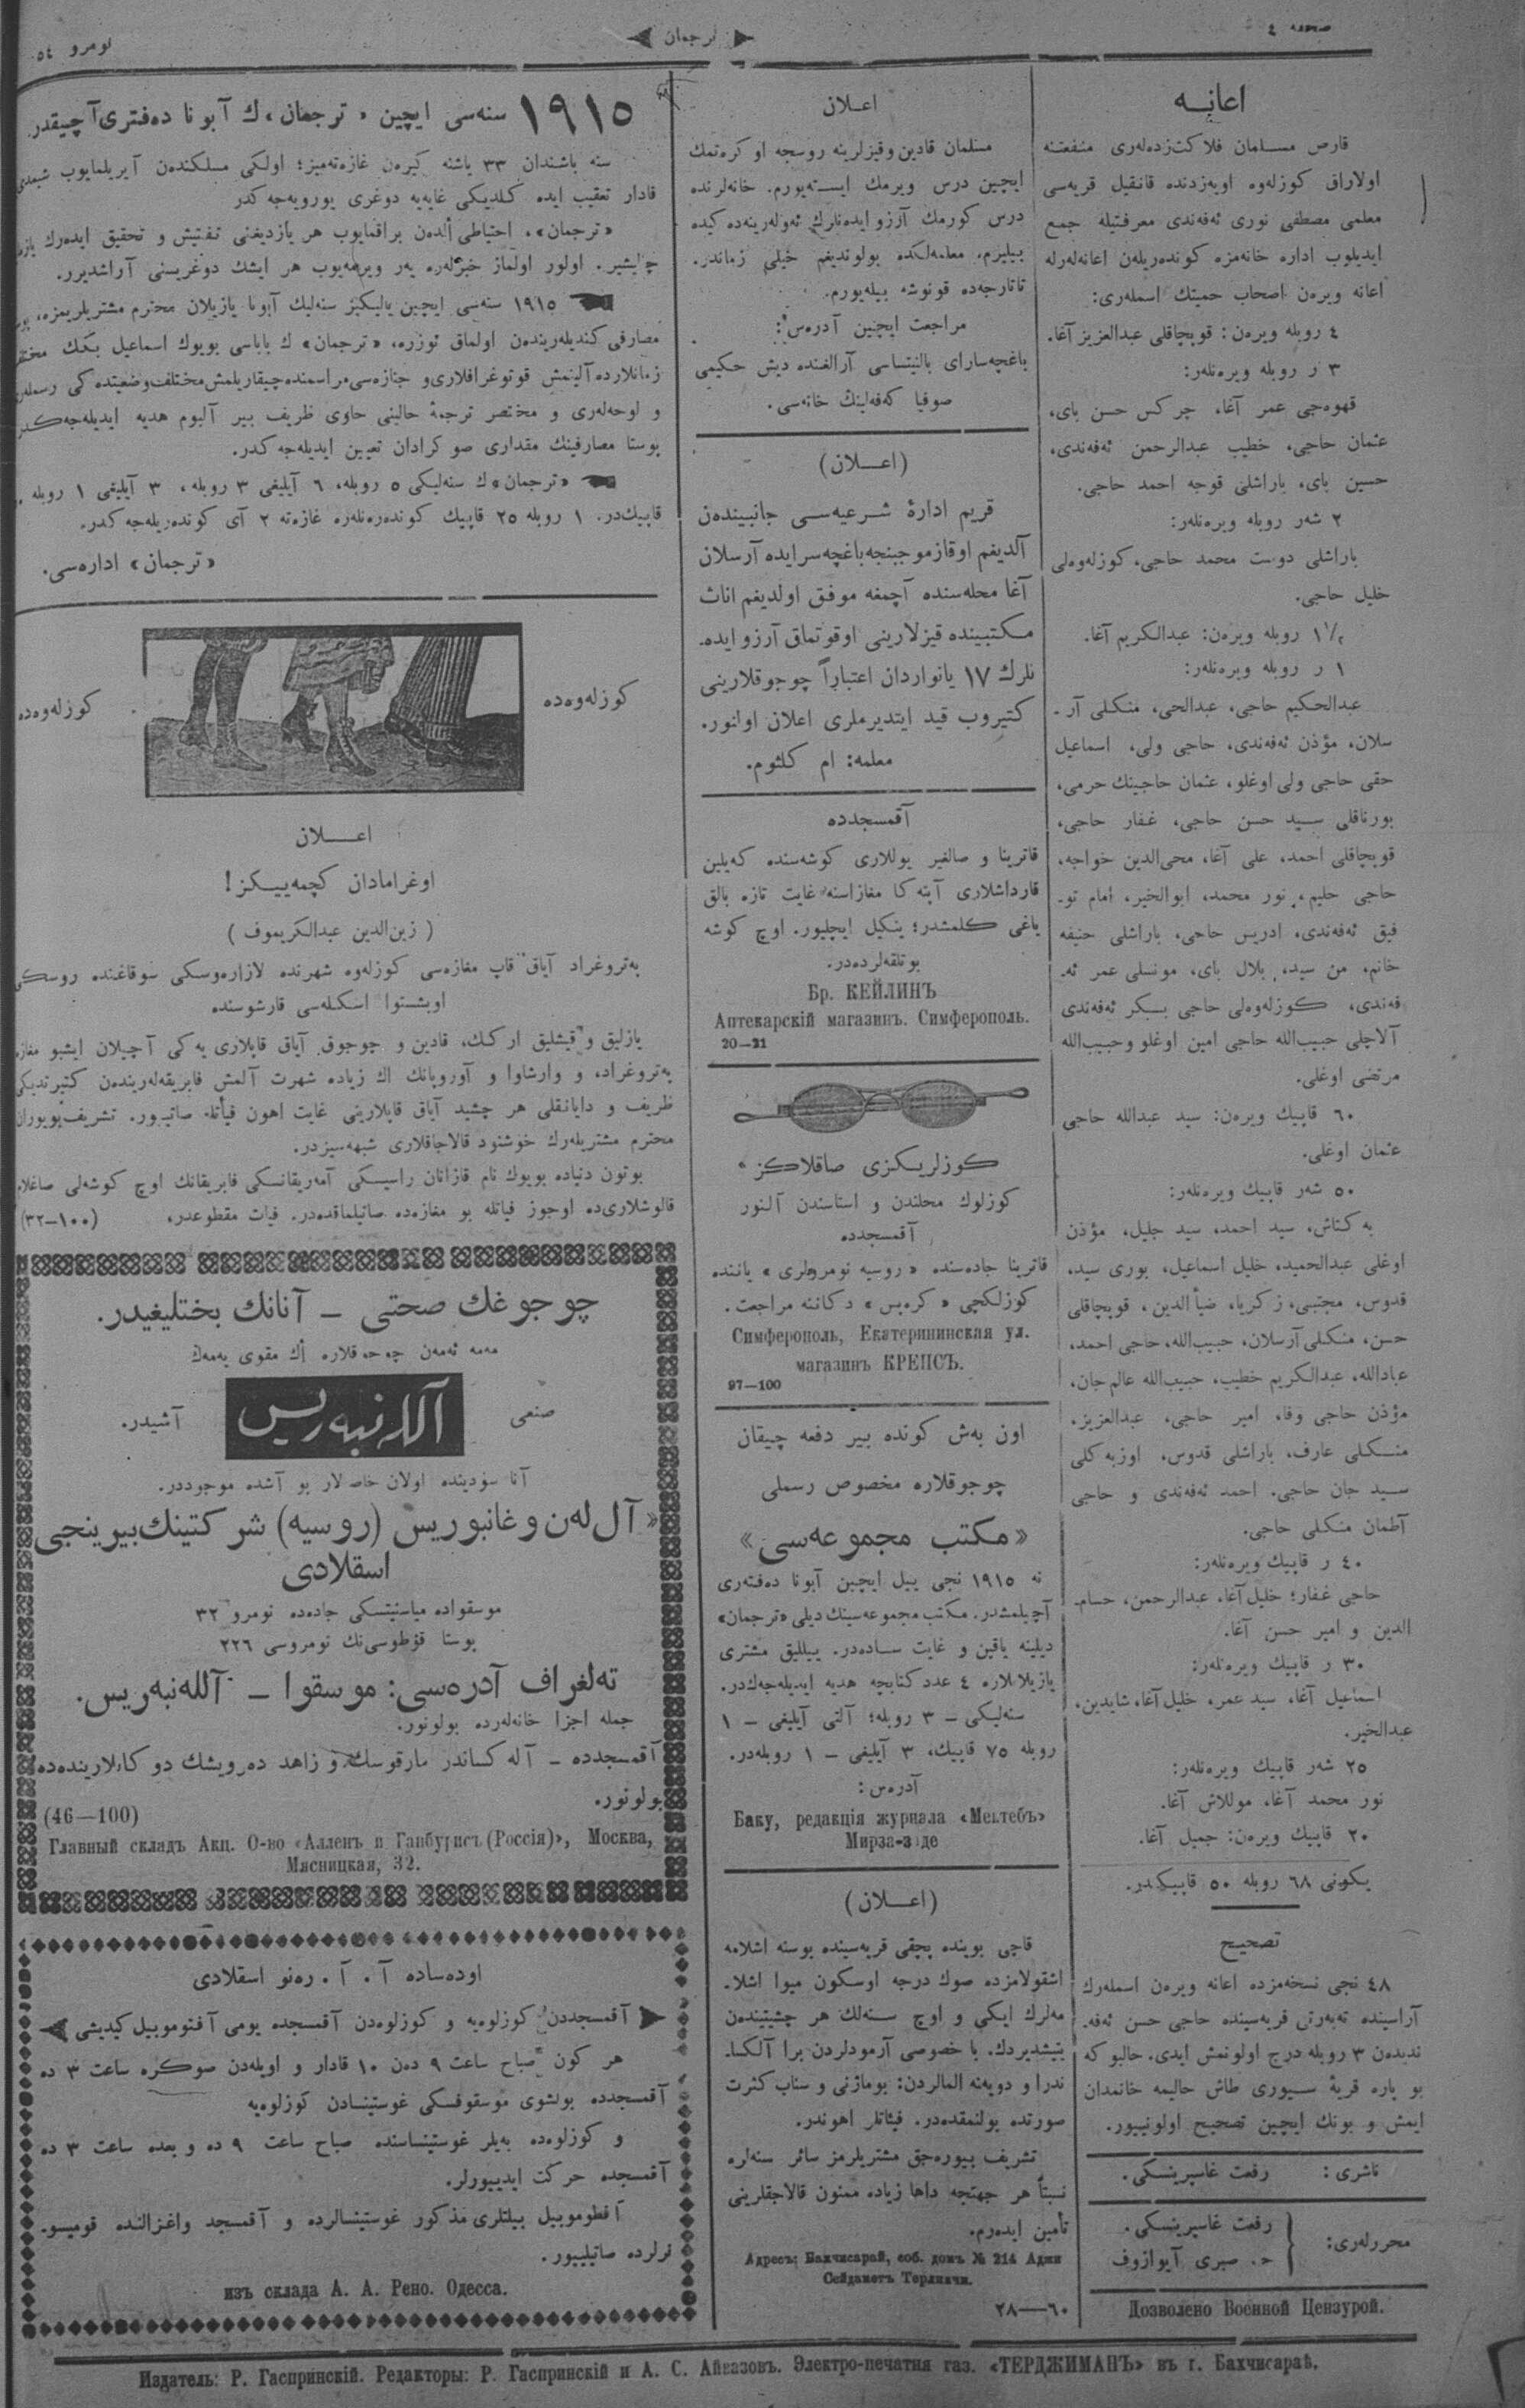 صحیفه ٤
ترجمان
نومرو ٥٤
اعانه
قارص مسلمان فلاکت‌زده‌لری منفعتنه
اولاراق کوزله‌وه اویه‌زدنده قانقیل قریه‌سی
معلمی مصطفی نوری ئه‌فه‌ندی معرفتیله جمع
ایدیلوب اداره خانه‌مزه کونده‌ریله‌ن اعانه‌لرله
اعانه ویره‌ن اصحاب حمیتك اسمله‌ری:
٤ روبله ویره‌ن: قوپچاقلی عبدالعزیز آغا.
٣ ر روبله ویره‌نلر:
قهوه‌جی عمر آغا، چرکس حسن بای،
عثمان حاجی، خطیب عبدالرحمن ئه‌فه‌ندی،
حسین بای، باراشلی قوجه احمد حاجی.
٢ شه‌ر روبله ویره‌نلر:
باراشلی دوست محمد حاجی، کوزله‌وه‌لی
خلیل حاجی.
١ ١/٢ روبله ویره‌ن: عبدالکریم آغا.
١ ر روبله ویره‌نلر:
عبدالحکیم حاجی، عبدالحی، منکلی آر-
سلان، مؤذن ئه‌فه‌ندی، حاجی ولی، اسماعیل
حقی حاجی ولی اوغلو، عثمان حاجینك حرمی،
بورناقلی سید حسن حاجی، غفار حاجی،
قوپچاقلی احمد، علی آغا، محی‌الدین خواجه،
حاجی حلیم، نور محمد، ابوالخیر، امام تو-
فیق ئه‌فه‌ندی، ادریس حاجی، باراشلی حنیفه
خانم، من سید، بلال بای، مونسلی عمر ئه-
فه‌ندی، کوزله‌وه‌لی حاجی بکر ئه‌فه‌ندی
آلاچلی حبیب‌الله حاجی امین اوغلو وحبیب‌الله
مرتضی اوغلی.
٦٠ قاپیك ویره‌ن: سید عبدالله حاجی
عثمان اوغلی.
٥٠ شه‌ر قاپیك ویره‌نلر:
به کتاش، سید احمد، سید جلیل، مؤذن
اوغلی عبدالحمید، خلیل اسماعیل، نوری سید،
قدوس، مجتبی، زکریا، ضیأالدین، قوپچاقلی
حسن، منکلی آرسلان، حبیب‌الله، حاجی احمد،
عبادالله، عبدالکریم خطیب، حبیب‌الله عالم جان،
مؤذن حاجی وفا، امیر حاجی، عبدالعزیز،
منکلی عارف، باراشلی قدوس، اوزبه کلی
سید جان حاجی، احمد ئه‌فه‌ندی و حاجی
آطمان منکلی حاجی.
٤٠ ر قاپیك ویره‌نلر:
حاجی غفار؛ خلیل آغا، عبدالرحمن، حسام-
الدین و امیر حسن آغا.
٣٠ ر قاپیك ویره‌نلر:
اسماعیل آغا، سید عمر، خلیل آغا، شایدین،
عبدالخیر.
٢٥ شه‌ر قاپیك ویره‌نلر:
نور محمد آغا، موللاش آغا.
٢٠ قاپیك ویره‌ن: جمیل آغا.
یکونی ٦٨ روبله ٥٠ قاپیکدر.
تصحیح
٤٨ نجی نسخه‌مزده اعانه ویره‌ن اسمله‌رك
آراسینده ته‌به‌رتی قریه‌سینده حاجی حسن ئه‌فه-
ندیدن ٣ روبله درج اولونمش ایدی. حالبو که
بو پاره قریۀ سیوری طاش حالیمه خانمدان
ایمش و بونك ایچین تصحیح اولونیور.
ناشری: رفعت غاسپرینسکی.
محررلری: رفعت غاسپرینسکی.
ح. صبری آیوازوف
Дозволено Военной Цензурой.
اعلان
مسلمان قادین وقیزلرینه روسجه او کره‌تمك
ایچین درس ویرمك ایسته‌یورم. خانه‌لرنده
درس کورمك آرزو ایده‌نلرك ئه‌وله‌رینه‌ده کیده
بیلیرم، معلمه‌لکده بولوندیغم خیلی زماندر.
تاتارجه‌ده قونوشه بیله‌یورم.
مراجعت ایچین آدره‌س:
باغچه‌سارای بالنیتساسی آرالغنده دیش حکیمی
صوفیا که‌فه‌لینك خانه‌سی.
(اعلان)
قریم ادارۀ شرعیه‌سی جانبیندەن
آلدیغم اوقازموجبنجه باغچه‌سرایده آرسلان
آغا محله‌سنده آچمغه موفق اولدیغم اناث
مکتبینده قیزلارینی اوقوتماق آرزو ایده-
نلرك ١٧ یانواردان اعتباراً چوجوقلارینی
کتیروب قید ایتدیرملری اعلان اولنور.
معلمه: ام کلثوم.
آقمسجدده
قاترینا و صالغیر یوللاری کوشه‌سنده که‌یلین
قارداشلاری آپته کا مغازاسنه غایت تازه بالق
یاغی کلمشدر؛ ینکیل ایچلیور. اوچ کوشه
بوتلقه‌لرده‌در.
Бр. КЕЙЛИНЪ
Аптекарскій магазинъ. Симферополь.
20—21
کوزلریکزی صاقلاکز
کوزلوك محلندن و استاسندن آلنور
آقمسجدده
قاترینا جاده‌سنده «روسیه نومرولری» یاننده
کوزلکچی «کره‌پس» دکاننه مراجعت.
Симферополь, Екатерининская ул.
магазинъ КРЕПСЪ.
97—100
اون به‌ش کونده بیر دفعه چیقان
چوجوقلاره مخصوص رسملی
«مکتب مجموعه‌سی»
نه ١٩١٥ نجی ییل ایچین آبونا ده‌فته‌ری
آچیلمشدر. مکتب مجموعه‌سینك دیلی «ترجمان»
دیلینه یاقین و غایت ساده‌در. ییللیق مشتری
یازیلانلاره ٤ عدد کتابچه هدیه ایدیله‌جه‌كدر.
سنه‌لیکی ـ ٣ روبله؛ آلتی آیلیغی ـ ١
روبله ٧٥ قاپیك، ٣ آیلیغی ـ ١ روبله‌در.
آدره‌س:
Баку, редакція журнала «Мектебъ»
Мирза-заде
(اعلان)
قاچی بوینده پچقی قریه‌سینده بوسنه اشلامه
اشقولامزده صوك درجه اوسکون میوا اشلا-
مه‌لرك ایکی و اوچ سنه‌لك هر چشیتیندەن
یتیشدیردك. با خصوصی آرمودلردن برا آلکسا-
ندرا و دویه‌نه المالردن: بوماژنی و سناب کثرت
صورتده بولنمقده‌در. فیئاتلر اهوندر.
تشریف بیوره‌جق مشتریلرمز سائر سنه‌لره
نسبتاً هر جهتجه داها زیاده ممنون قالاجقلرینی
تأمین ایده‌رم.
Адресъ: Бахчисарай, соб. домъ № 214 Аджи
Сейдаметъ Терликчи.
٢٨—٦٠
١٩١٥ سنه‌سی ایچین «ترجمان» ك آبونا ده‌فتری آچیقدر
سنه باشندان ٣٣ یاشنه کیره‌ن غازه‌ته‌میز؛ اولکی مسلکندەن آیریلمایوب شیمدی
قادار تعقیب ایده کلدیکی غایه‌یه دوغری یورویه‌جه‌کدر
«ترجمان»، احتیاطی ألدەن براقمایوب هر یازدیغنی تفتیش و تحقیق ایده‌رك
چالیشیر. اولور اولماز خبرلره یه‌ر ویرمه‌یوب هر ایشك دوغریسنی آراشدیرر.
١٩١٥ سنه‌سی ایچین یالیکیز سنه‌لیك آبونا یازیلان محترم مشتریلریمزه،
مصارفی کندیله‌رینده‌ن اولماق ئوزره، «ترجمان» ك باباسی بویوك اسماعیل بکك
زمانلارده آلینمش فوتوغرافلاری و جنازه‌سی مراسمنده چیقاریلمش مختلف وضعیتده کی
و لوحه‌لری و مختصر ترجمۀ حالینی حاوی ظریف بیر آلبوم هدیه ایدیله‌جه‌کدر
پوستا مصارفینك مقداری صوکرادان تعیین ایدیله‌جه‌کدر.
«ترجمان» ك سنه‌لیکی ٥ روبله، ٦ آیلیغی ٣ روبله، ٣ آیلیغی ١ روبله
قاپیك‌در. ١ روبله ٢٥ قاپیك کونده‌ره‌نلره غازه‌ته ٢ آی کونده‌ریله‌جه‌کدر.
«ترجمان» اداره‌سی.
کوزله‌وه‌ده
کوزله‌وه‌ده
اعلان
اوغرامادان کچمه‌ییکز!
(زین‌الدین عبدالکریموف)
په‌تروغراد آیاق قاپ مغازه‌سی کوزله‌وه شهرنده لازاره‌وسکی سوقاغنده
اوبشستوا اسکله‌سی قارشوسنده
یازلیق و قیشلیق ارکك، قادین و چوجوق آیاق قاپلاری یه‌کی آچیلان ایشبو
په‌تروغراد، و وارشاوا و آوروپانك اك زیاده شهرت آلمش فابریقه‌له‌رینده‌ن
ظریف و دایانقلی هر چشید آیاق قاپلارینی غایت اهون فیأتله صاتیور.
محترم مشتریله‌رك خوشنود قالاجاقلاری شبهه‌سیزدر.
بوتون دنیاده بویوك نام قازانان راسیسکی آمه‌ریقانسکی فابریقانك اوچ کوشه‌لی
قالوشلاری‌ده اوجوز فیاتله بو مغازه‌ده صاتیلماقده‌در. فیات مقطوعدر. (٣٢—١٠٠)
چوجوغك صحتی ـ آنانك بختلیغیدر.
مه‌مه ئه‌مه‌ن چوجوقلاره أك مقوی یه‌مه‌ك
صنعی
آللەنبه‌ریس
آشیدر.
آنا سودینده اولان خاصه‌لار بو آشده موجوددر.
«آل‌له‌ن وغانبوریس (روسیه) شرکتینك بیرینجی
اسقلادی
موسقواده میاسنیتسکی جاده‌ده نومرو ٣٢
پوستا قوطوسی‌نك نومروسی ٢٢٦
ته‌لغراف آدره‌سی: موسقوا ـ آللەنبه‌ریس.
جمله اجزا خانه‌لرده بولونور.
آقمسجدده ـ آله‌کساندر مارقوسك و زاهد ده‌رویشك دوکانلارینده‌ده
بولونور.
(46—100)
Главный складъ Акц. О-во «Алленъ и Ганбурисъ (Россія)», Москва,
Мясницкая, 32.
اوده‌ساده آ. آ. ره‌نو اسقلادی
آقمسجددن کوزلوه‌یه و کوزلوه‌دن آقمسجده یومی آفتوموبیل کیدیشی
هر کون صباح ساعت ٩ ده‌ن ١٠ قادار و اویله‌دن صوکره ساعت ٣ ده
آقمسجدده بولشوی موسقوفسکی غوستینسادن کوزلوه‌یه
و کوزلوه‌ده به‌یلر غوستینساسنده صباح ساعت ٩ ده و بعده ساعت ٣ ده
آقمسجده حرکت ایدییورلر.
آفطوموبیل بیلتلری مذکور غوستینسالرده و آقمسجد واغزالنده قومیسو-
نرلرده صاتیلییور.
изъ склада А. А. Рено. Одесса.
Издатель: Р. Гаспринскій. Редакторы: Р. Гаспринскій и А. С. Айвазовъ. Электро-печатня газ. «ТЕРДЖИМАНЪ» въ г. Бахчисараѣ.